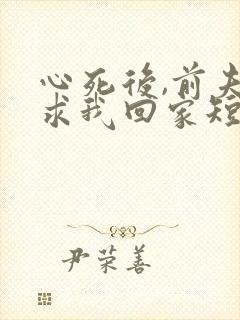 心死後,前夫
求我回家短
尹荣善